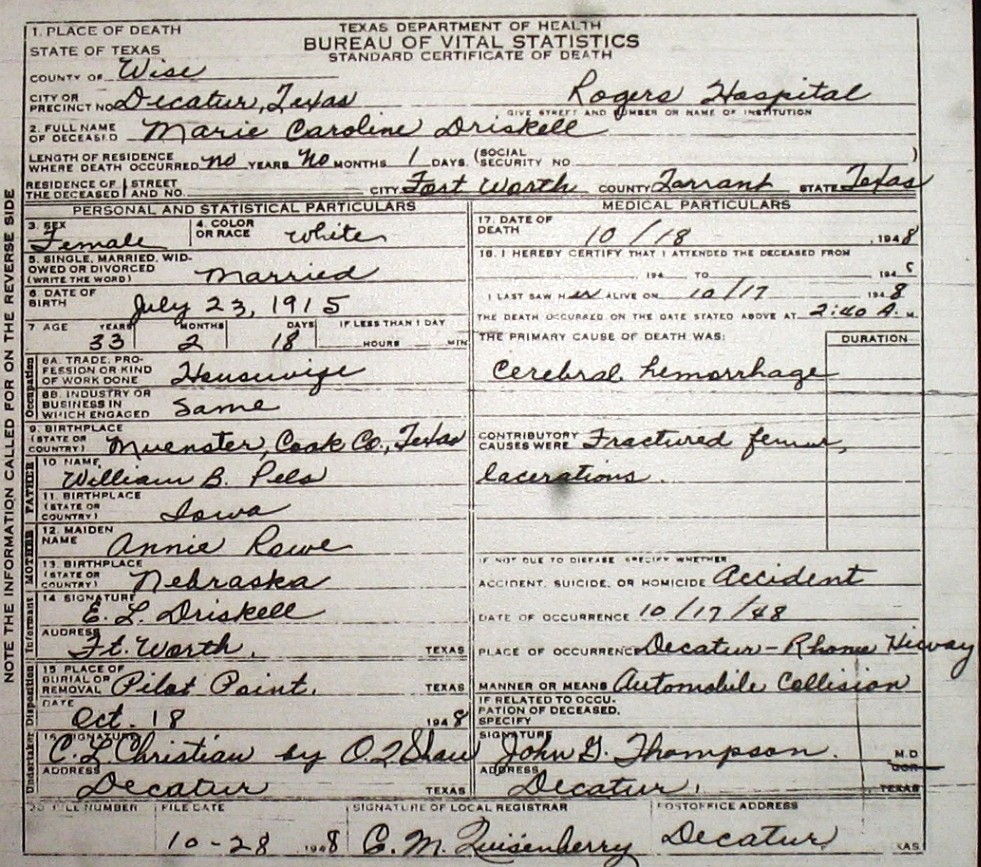 TEXAS DEPARTMENT OF HEALTH
BUREAU OF VITAL STATISTICS
STANDARD CERTIFICATE OF DEATH
1. PLACE OF DEATH
STATE OF TEXAS
COUNTY OF Wise
CITY OR PRECINCT NO. Decatur, Texas Rogers Hospital
GIVE STREET AND NUMBER OR NAME OF INSTITUTION
2. FULL NAME OF DECEASED Marie Caroline Driskell
LENGTH OF RESIDENCE WHERE DEATH OCCURRED no YEARS no MONTHS 1 DAYS. (SOCIAL SECURITY NO. )
RESIDENCE OF THE DECEASED STREET AND NO. CITY Fort Worth COUNTY Tarrant STATE Texas
PERSONAL AND STATISTICAL PARTICULARS
3. SEX Female 4. COLOR OR RACE white
5. SINGLE, MARRIED, WIDOWED OR DIVORCED (WRITE THE WORD) Married
6. DATE OF BIRTH July 23, 1915
7 AGE YEARS 33 MONTHS 2 DAYS 18 IF LESS THAN 1 DAY HOURS MIN
Occupation
8A. TRADE, PROFESSION OR KIND OF WORK DONE Housewife
8B. INDUSTRY OR BUSINESS IN WHICH ENGAGED Same
9. BIRTHPLACE (STATE OR COUNTRY) Muenster, Cook Co., Texas
FATHER
10 NAME William B. Pels
11. BIRTHPLACE (STATE OR COUNTRY) Iowa
MOTHER
12. MAIDEN NAME Annie Rowe
13. BIRTHPLACE (STATE OR COUNTRY) Nebraska
Informant
14 SIGNATURE E. L. Driskell
ADDRESS Ft. Worth, TEXAS
Disposition
15 PLACE OF BURIAL OR REMOVAL Pilot Point, TEXAS
DATE Oct. 18 1948
Undertaker
16 SIGNATURE C. L. Christian by O. L. Shaw
ADDRESS Decatur TEXAS
MEDICAL PARTICULARS
17. DATE OF DEATH 10/18, 1948
18. I HEREBY CERTIFY THAT I ATTENDED THE DECEASED FROM
, 194 TO 194
I LAST SAW Her ALIVE ON 10/17 1948
THE DEATH OCCURRED ON THE DATE STATED ABOVE AT 2:40 A. M.
THE PRIMARY CAUSE OF DEATH WAS: DURATION
Cerebral hemorrhage
CONTRIBUTORY CAUSES WERE Fractured femur,
lacerations.
IF NOT DUE TO DISEASE SPECIFY WHETHER
ACCIDENT, SUICIDE, OR HOMICIDE Accident
DATE OF OCCURRENCE 10/17/48
PLACE OF OCCURRENCE Decatur - Rhome Hiway
MANNER OR MEANS Automobile Collision
IF RELATED TO OCCUPATION OF DECEASED, SPECIFY
SIGNATURE John G. Thompson. M.D
ADDRESS Decatur, TEXAS
20 FILE NUMBER FILE DATE SIGNATURE OF LOCAL REGISTRAR POSTOFFICE ADDRESS
10-28 1948 C. M. Quisenberry Decatur
NOTE THE INFORMATION CALLED FOR ON THE REVERSE SIDE